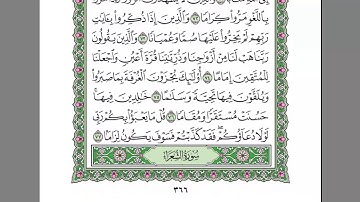 بِٱللَّغْوِ مَرُّوا۟ كِرَامًا ٧٢ وَٱلَّذِينَ إِذَا ذُكِّرُوا۟ بِـَٔايَٰتِ
رَبِّهِمْ لَمْ يَخِرُّوا۟ عَلَيْهَا صُمًّا وَعُمْيَانًا ٧٣ وَٱلَّذِينَ يَقُولُونَ
رَبَّنَا هَبْ لَنَا مِنْ أَزْوَٰجِنَا وَذُرِّيَّٰتِنَا قُرَّةَ أَعْيُنٍ وَٱجْعَلْنَا
لِلْمُتَّقِينَ إِمَامًا ٧٤ أُو۟لَٰٓئِكَ يُجْزَوْنَ ٱلْغُرْفَةَ بِمَا صَبَرُوا۟
وَيُلَقَّوْنَ فِيهَا تَحِيَّةً وَسَلَٰمًا ٧٥ خَٰلِدِينَ فِيهَا
حَسُنَتْ مُسْتَقَرًّا وَمُقَامًا ٧٦ قُلْ مَا يَعْبَؤُا۟ بِكُمْ رَبِّى
لَوْلَا دُعَآؤُكُمْ فَقَدْ كَذَّبْتُمْ فَسَوْفَ يَكُونُ لِزَامًۢا ٧٧
سُورَةُ الشُّعَرَاءِ
٣٦٦